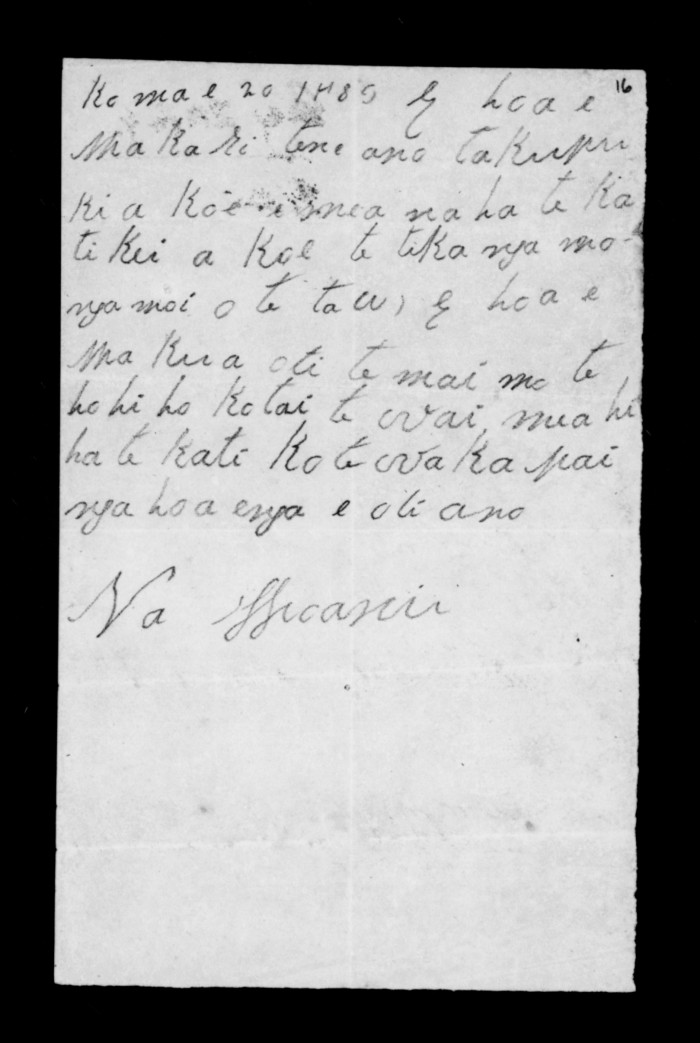 16
Ko mae 20 1880 E hoa e
Makari tene ano takupu
ki a Koe e mea naha te Ka
ti Kei a Koe te tikanga mo
nga moi o te taw, E hoa e
Ma Kua oti te mai mo te
ho hi ho Ko tai te ovai mea hi
ha te Kati Ko te ova Ka pai
nga hoa enga e oti ano
Na